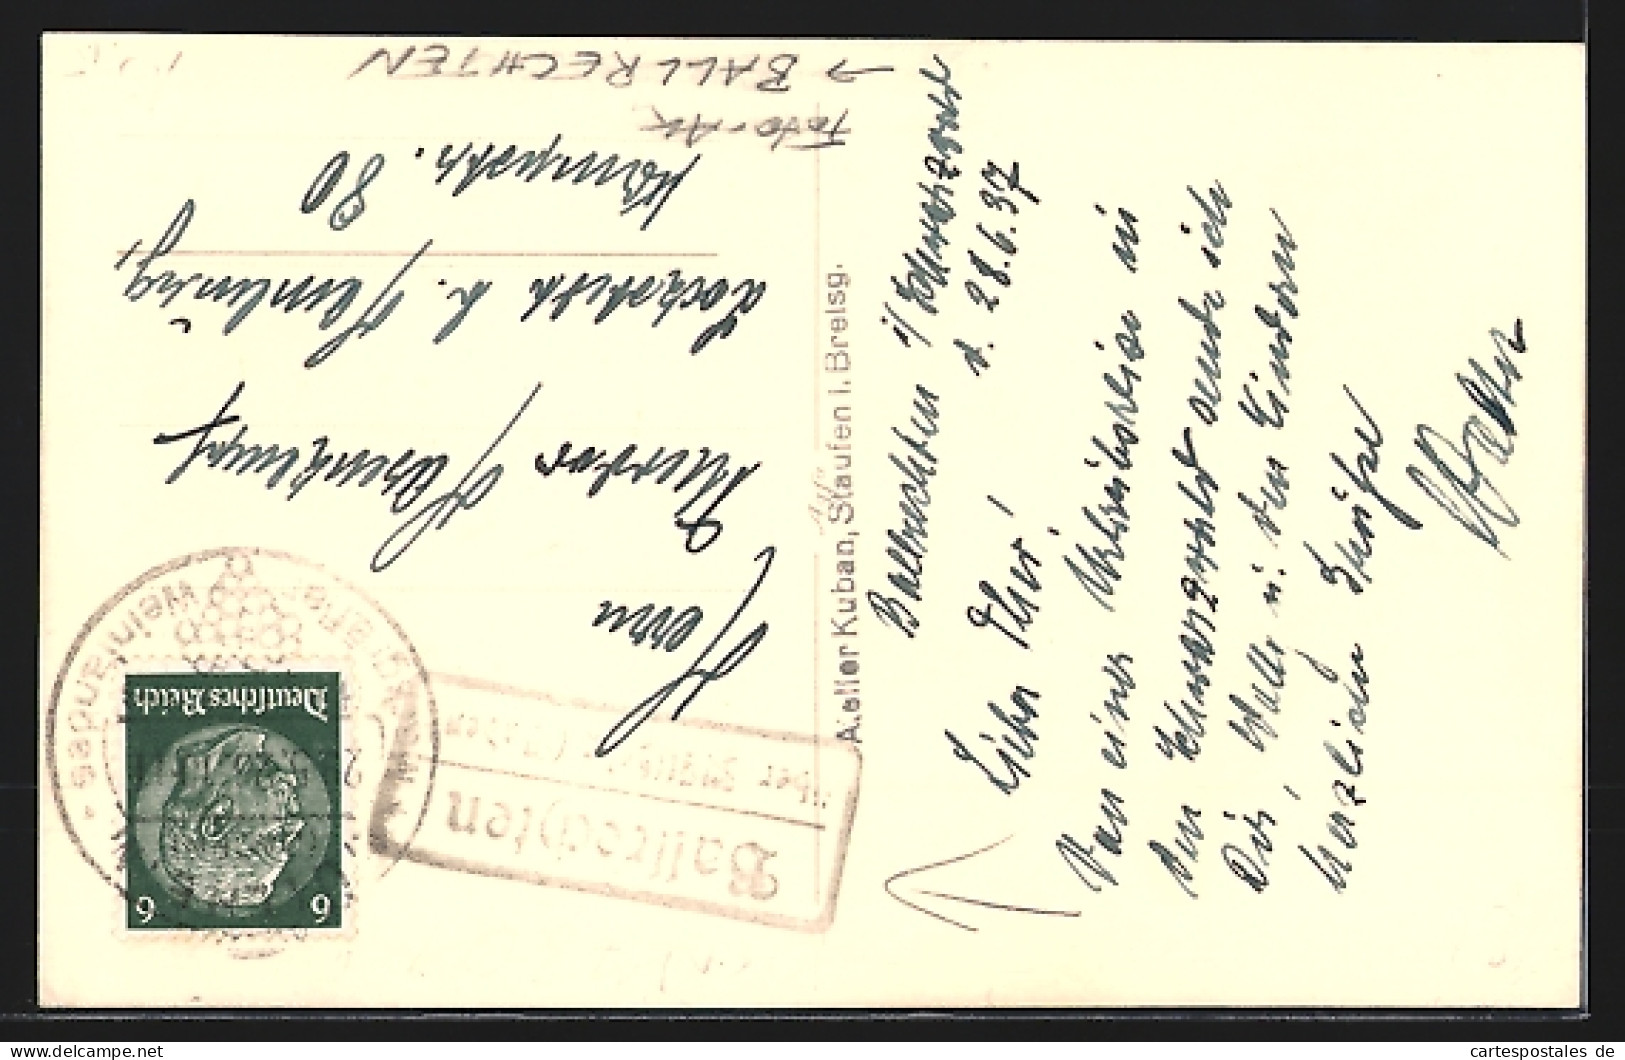 → BALLRECHTEN
Foto-AK
Herrn
Hasenklumpf
Lokstedt b. Hamburg
80
A.elier Kuban, Staufen i. Breisg.
Ballrechten i/Schwarzwald
d. 28.6.37
Lieber Theo!
Von einer Urlaubsreise in
den Schwarzwald sende ich
Dir, u. den Kindern
herzliche Grüße
Walter
Ballrechten
über
Markgräfler Weinlandes
Deutsches Reich
6 6
cartespostales de